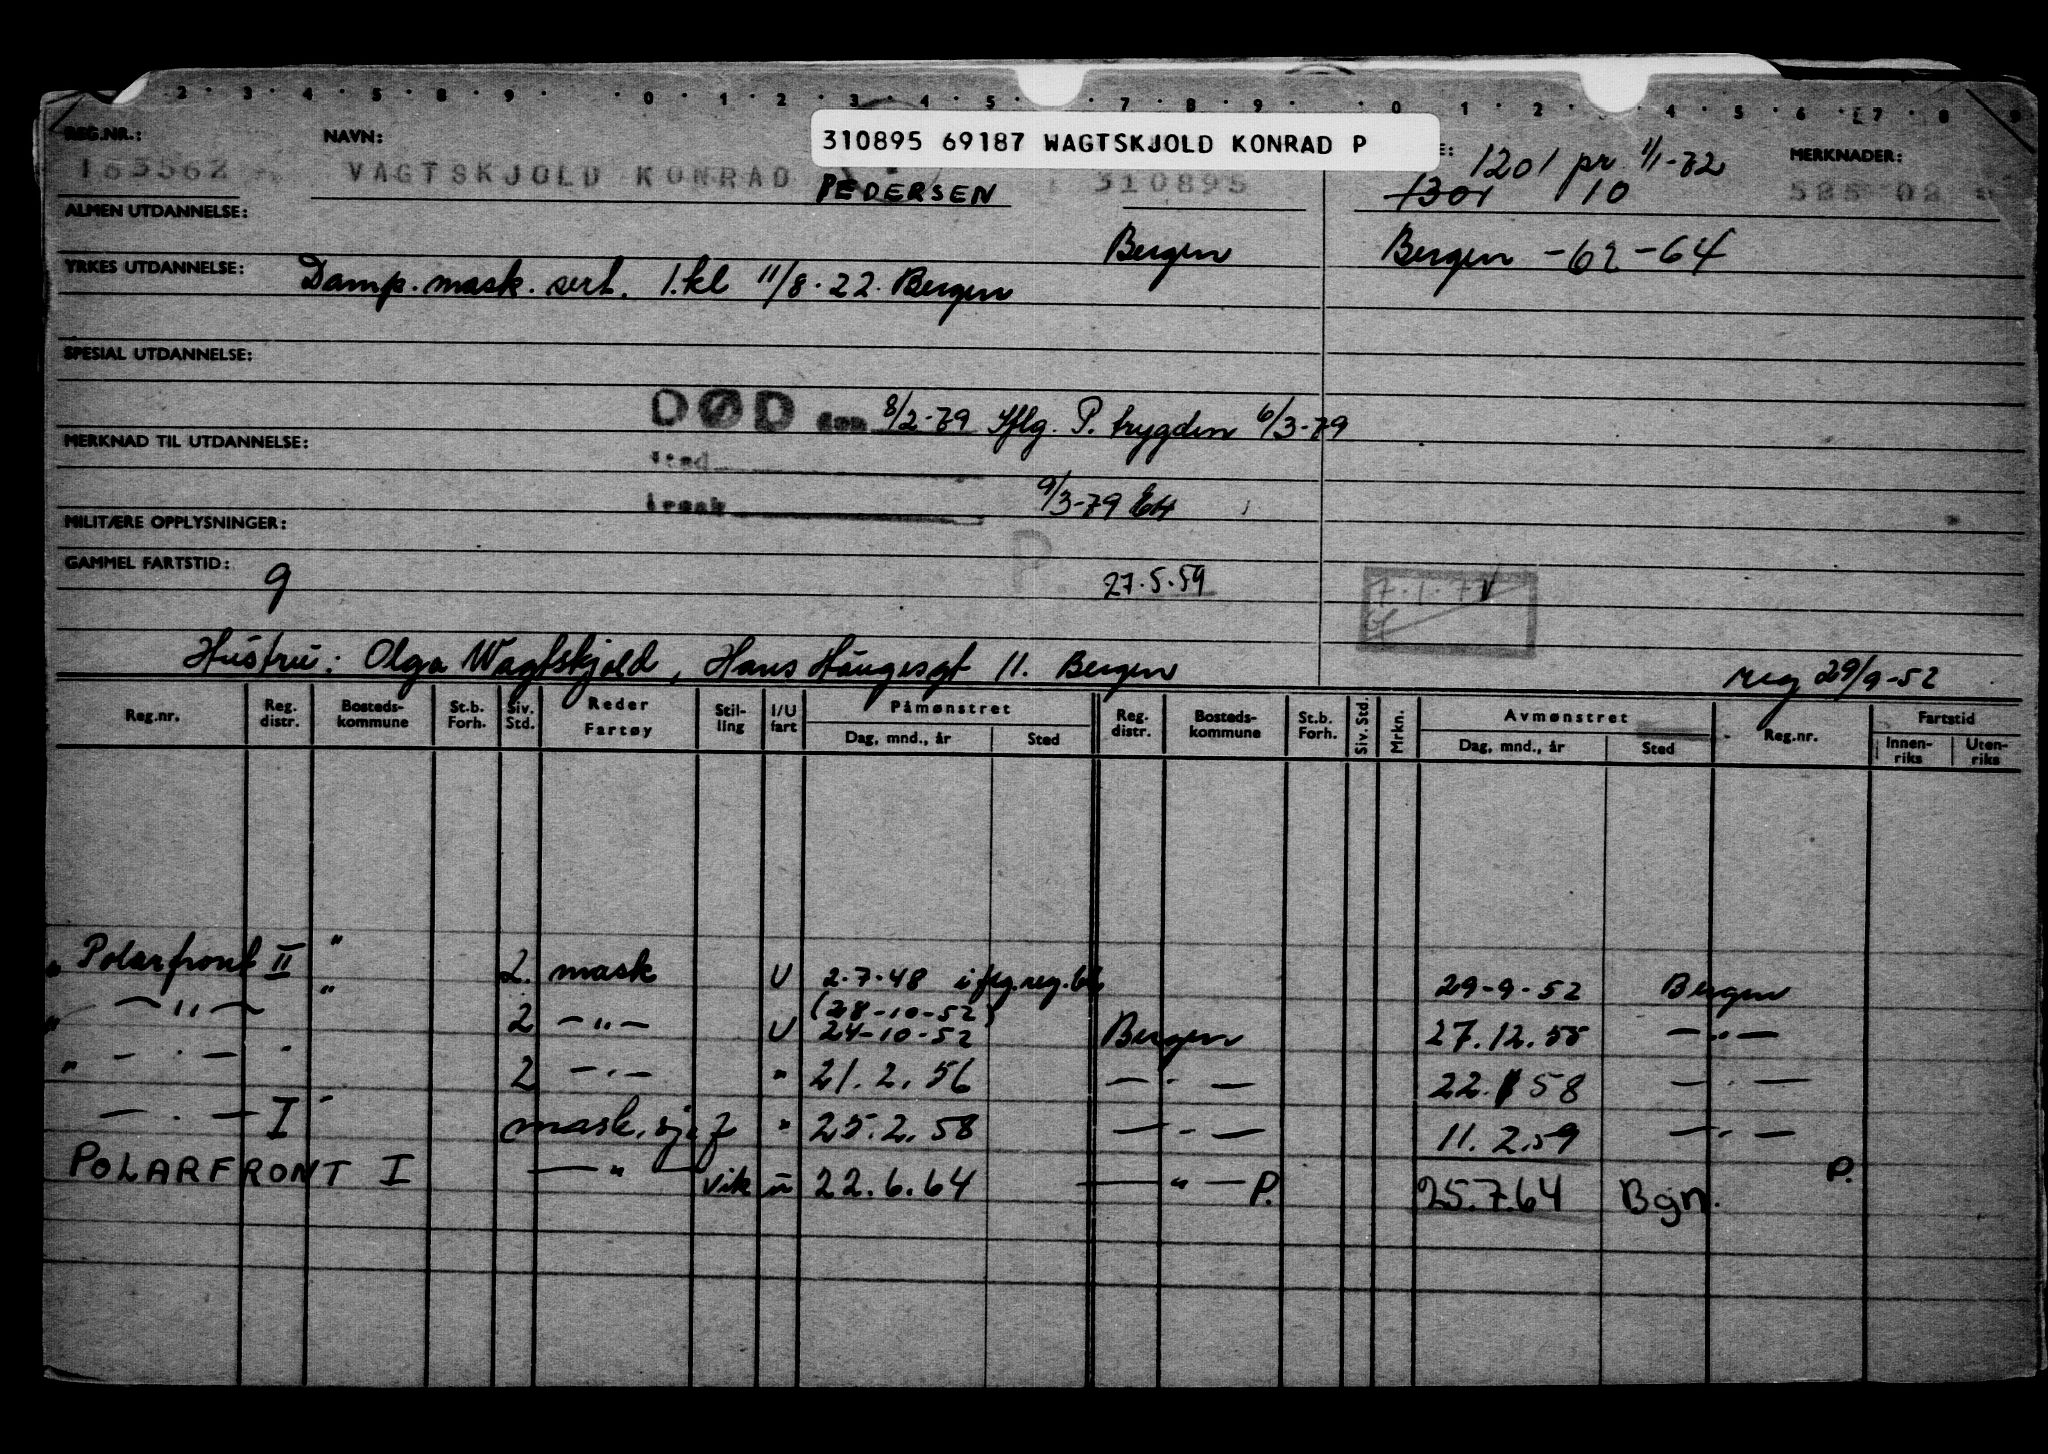 2 · 3 · 4 · 5 · 8 · 9 · · 0 · 1 · 2 · 3 · 4 · 5 · 7 · 8 · 9 · · 0 · 1 · 2 · 4 · 5 · 6 · 7 · 8 · 9
310895 69187 WAGTSKJOLD KONRAD P
REG.NR.: NAVN: MERKNADER:
163562 VAGTSKJOLD KONRAD 310895 1201 pr 1/1-72
PEDERSEN 1301 10
ALMEN UTDANNELSE:
Bergen Bergen -62-64
YRKES UTDANNELSE: Damp. mask. sert. 1.kl 11/8.22. Bergen
SPESIAL UTDANNELSE:
DØD den 8/2-79 Iflg. P. trygden 6/3-79
MERKNAD TIL UTDANNELSE:
sted
årsak 9/3-79
MILITÆRE OPPLYSNINGER:
P.
GAMMEL FARTSTID: 9 27.5.59
Hustru: Olga Wagtskjold, Hans Haugesgt 11. Bergen reg 29/9-52
Reg.nr. Reg. distr. Bosteds-kommune St.b. Forh. Siv. Std. Reder Fartøy Stil-ling I/U fart Påmønstret Dag, mnd., år Sted Reg. distr. Bosteds-kommune St.b. Forh. Siv. Std. Mrkn. Avmønstret Dag, mnd., år Sted Reg.nr. Fartstid Innen-riks Uten-riks
" Polarfront II " 2. mask U 2.7.48 iflg.reg. 29-9-52 Bergen
(28-10-52)
" — " — " 2 — " — U 24-10-52 Bergen 27.12.55 — " —
" — " — " 2 — " — " 21.2.56 — " — 22. 58 — " —
— " — I " mask.sjef " 25.2.58 — " — 11.2.59 — " —
POLARFRONT I — " — vik u 22.6.64 — " — P. 25.7.64 Bgn. P.